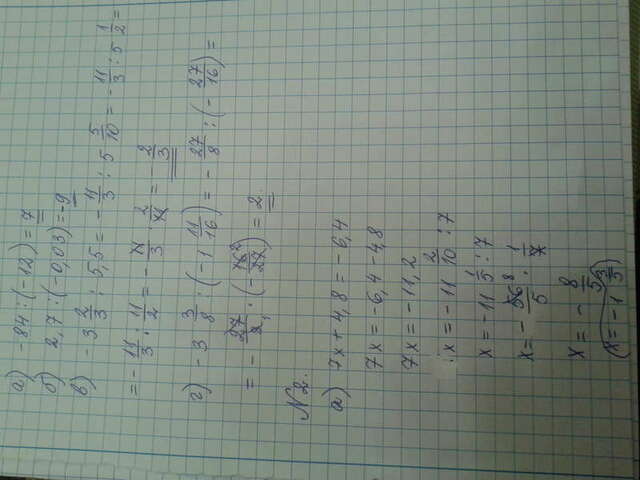 а) -84:(-12)=7
б) 2,7:(-0,03)=-9
в) -3 2/3 : 5,5 = - 11/3 : 5 5/10 = - 11/3 : 5 1/2 =
= - 11/3 : 11/2 = - 11/3 · 2/11 = - 2/3
г) -3 3/8 : (-1 11/16) = - 27/8 : (- 27/16) =
= - 27/8 · (- 16/27) = 2.
№2.
а) 7x+4,8=-6,4
7x=-6,4-4,8
7x=-11,2
x=-11 2/10 :7
x=-11 1/5 :7
x= - 56/5 · 1/7
x= - 8/5
x=-1 3/5